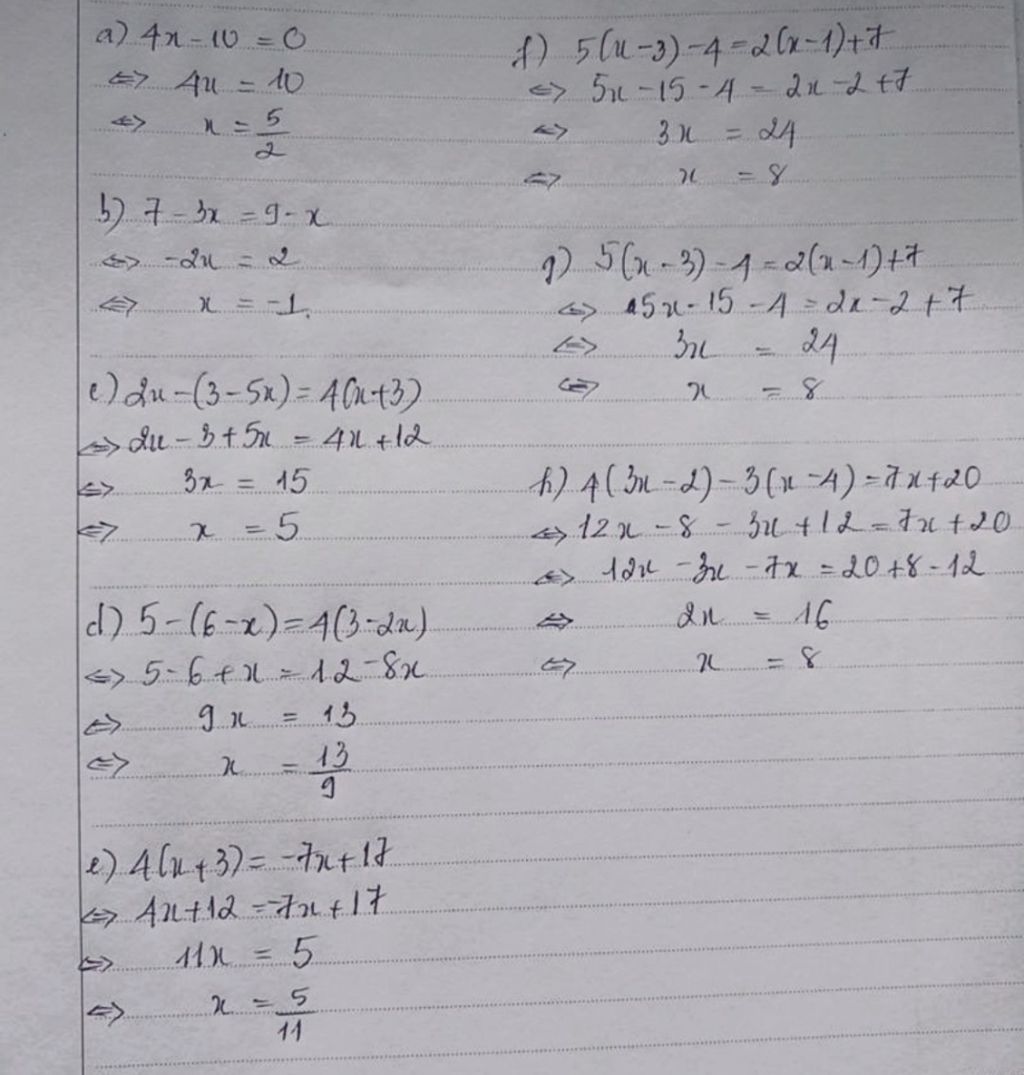 a) 4x - 10 = 0
⇔ 4x = 10
⇔ x = 5/2
b) 7 - 3x = 9 - x
⇔ -2x = 2
⇔ x = -1.
c) 2x - (3 - 5x) = 4(x + 3)
⇔ 2x - 3 + 5x = 4x + 12
⇔ 3x = 15
⇔ x = 5
d) 5 - (6 - x) = 4(3 - 2x)
⇔ 5 - 6 + x = 12 - 8x
⇔ 9x = 13
⇔ x = 13/9
e) 4(x + 3) = -7x + 17
⇔ 4x + 12 = -7x + 17
⇔ 11x = 5
⇔ x = 5/11
f) 5(x - 3) - 4 = 2(x - 1) + 7
⇔ 5x - 15 - 4 = 2x - 2 + 7
⇔ 3x = 24
⇔ x = 8
g) 5(x - 3) - 4 = 2(x - 1) + 7
⇔ 5x - 15 - 4 = 2x - 2 + 7
⇔ 3x = 24
⇔ x = 8
h) 4(3x - 2) - 3(x - 4) = 7x + 20
⇔ 12x - 8 - 3x + 12 = 7x + 20
⇔ 12x - 3x - 7x = 20 + 8 - 12
⇔ 2x = 16
⇔ x = 8